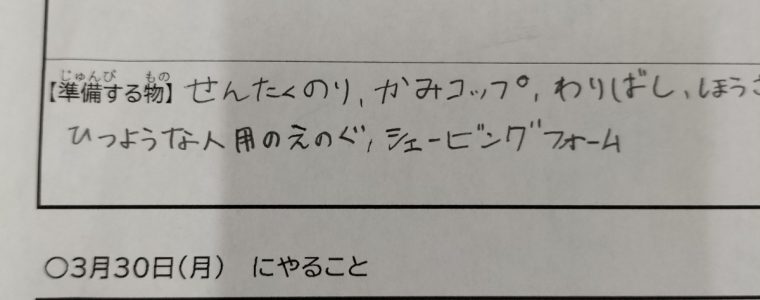 じゅんび もの
【準備する物】せんたくのり、かみコップ、わりばし、ほう
ひつような人用のえのぐ、シェービングフォーム
○3月30日(月) にやること